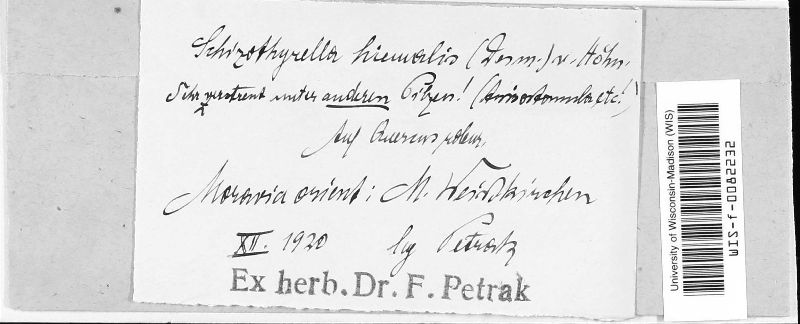 Schizothyrella hiemalis (Desm.) v. Höhn.
Sehr zerstreut unter anderen Pilzen! (Anisostomula etc.!)
Auf Quercus robur,
Moravia orient: M. Weisskirchen
XII. 1920 lg Petrak
Ex herb. Dr. F. Petrak
University of Wisconsin-Madison (WIS)
WIS-f-0082232